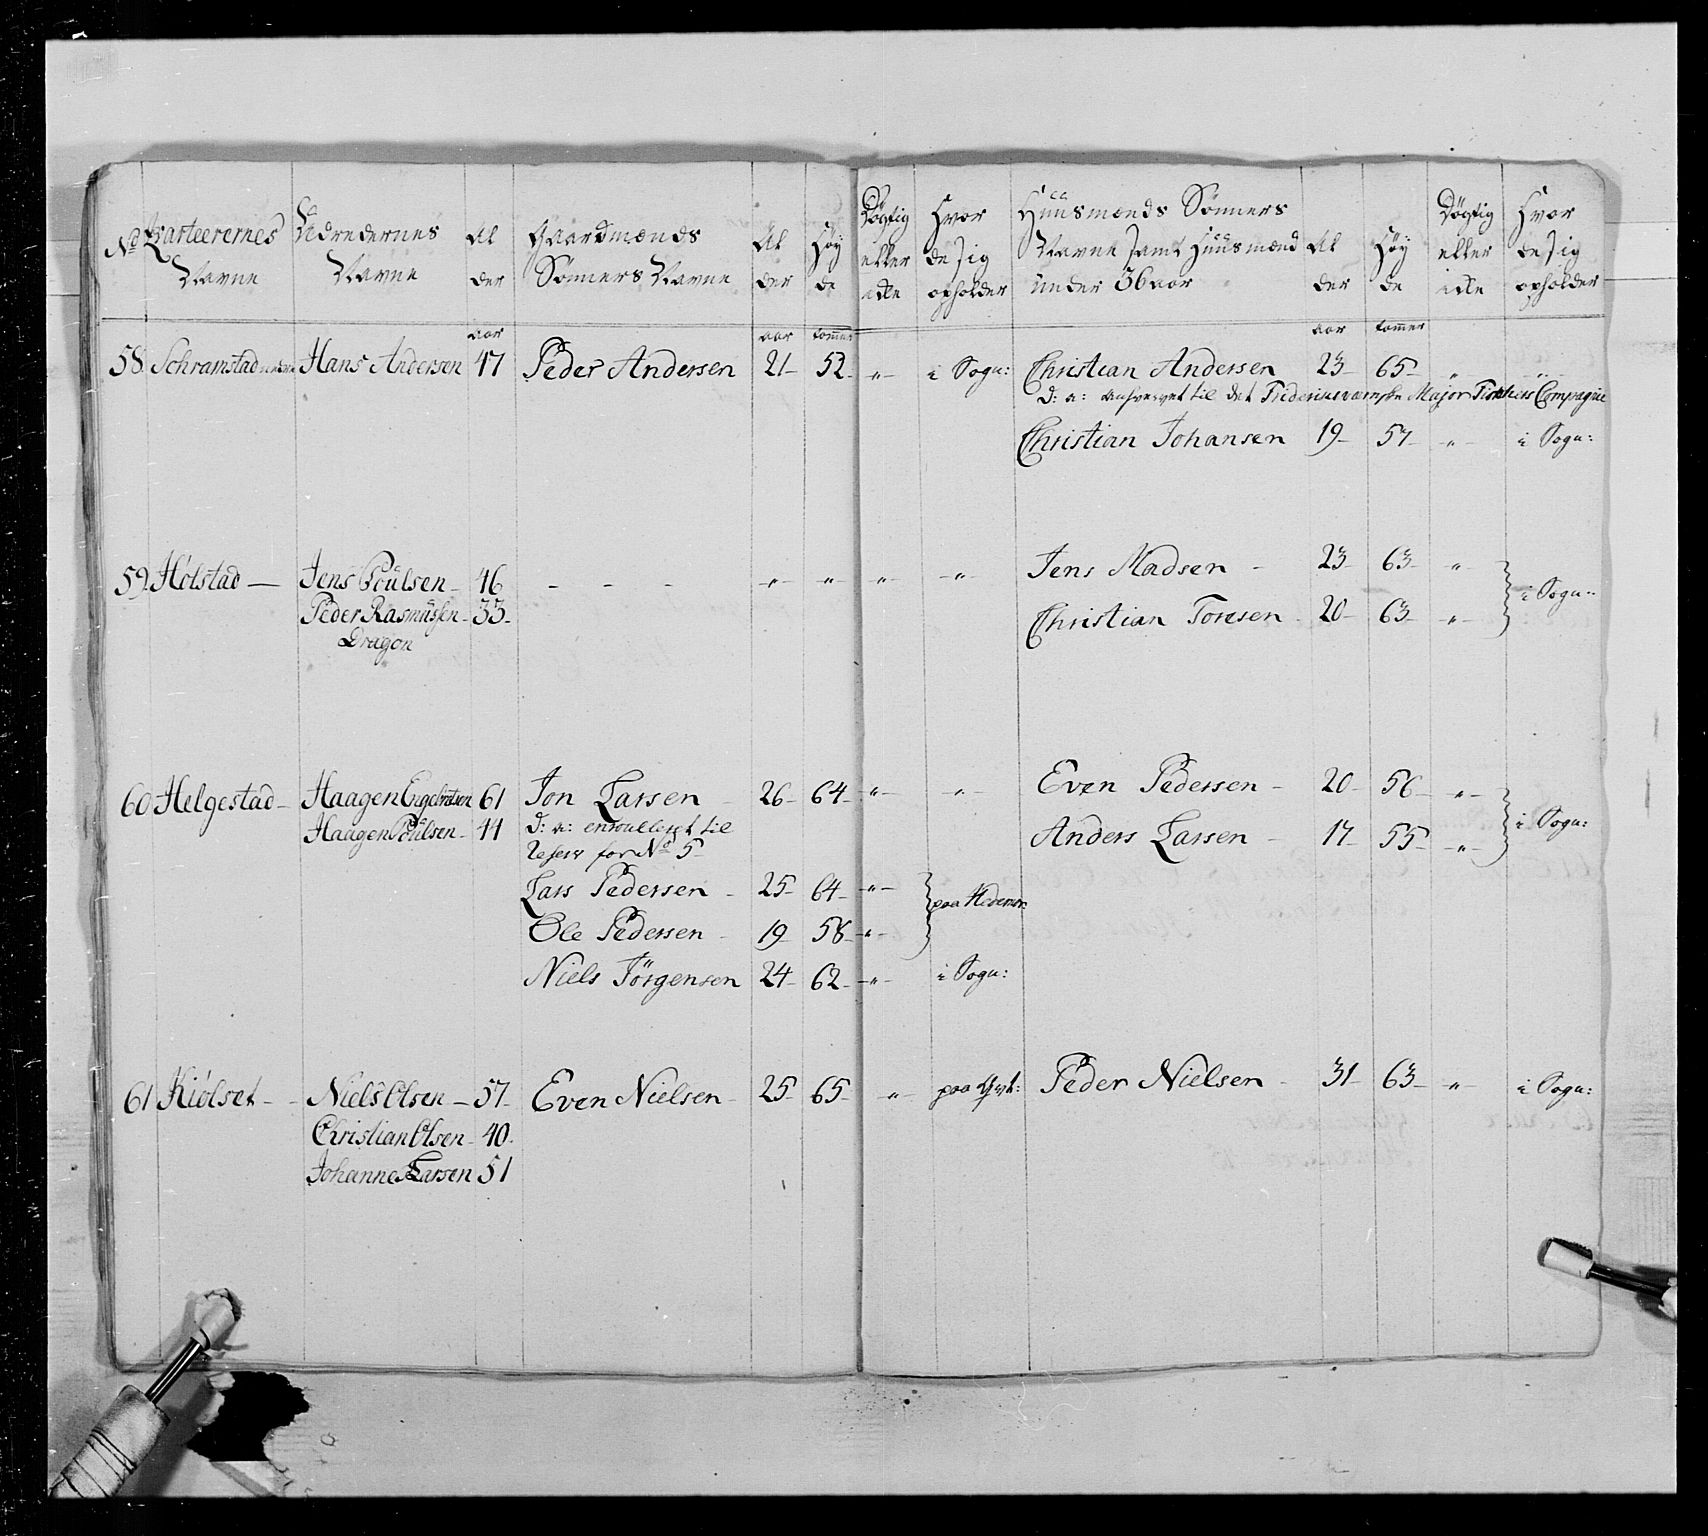 No Qvarteerernes Navne | Beboernes Navne | Al der | Gaardmænds Sønners Navne | Al der | Høy de | Døgtig eller icke | Hvor de sig opholder | Huusmænds Sønners Navne samt Huusmænd under 36 aar | Al der | Høy de | Døgtig eller icke | Hvor de sig opholder
aar | aar | tommer | aar | tommer
58. Schramstad Hans Andersen 47 Peder Andersen 21 52 " i Sogn: Christian Andersen 23 65 " "
D: a: anhvervet til det Major Compagnie
Christian Johansen 19 57 " i Sogn:
59. Holstad — Jens Poulsen 46 - - - " " " " Jens Madsen 23 63 " i Sogn:
Peder Rasmussen 33 Christian Toresen 20 63 "
Dragon
60 Helgestad Haagen Engebretsen 61 Jon Larsen 26 64 " " Even Pedersen 20 56 " i Sogn:
Haagen Poulsen 44 D: a: enroulleret til Anders Larsen 17 55 "
Reserv for No 5
Lars Pedersen 25 64 " paa Hedem:
Ole Pedersen 19 58 "
Niels Jörgensen 24 62 " i Sogn:
61 Kiölset Niels Olsen 57 Even Nielsen 25 65 " paa Peder Nielsen 31 63 " i Sogn:
Christian Olsen 40
Johannes Larsen 51